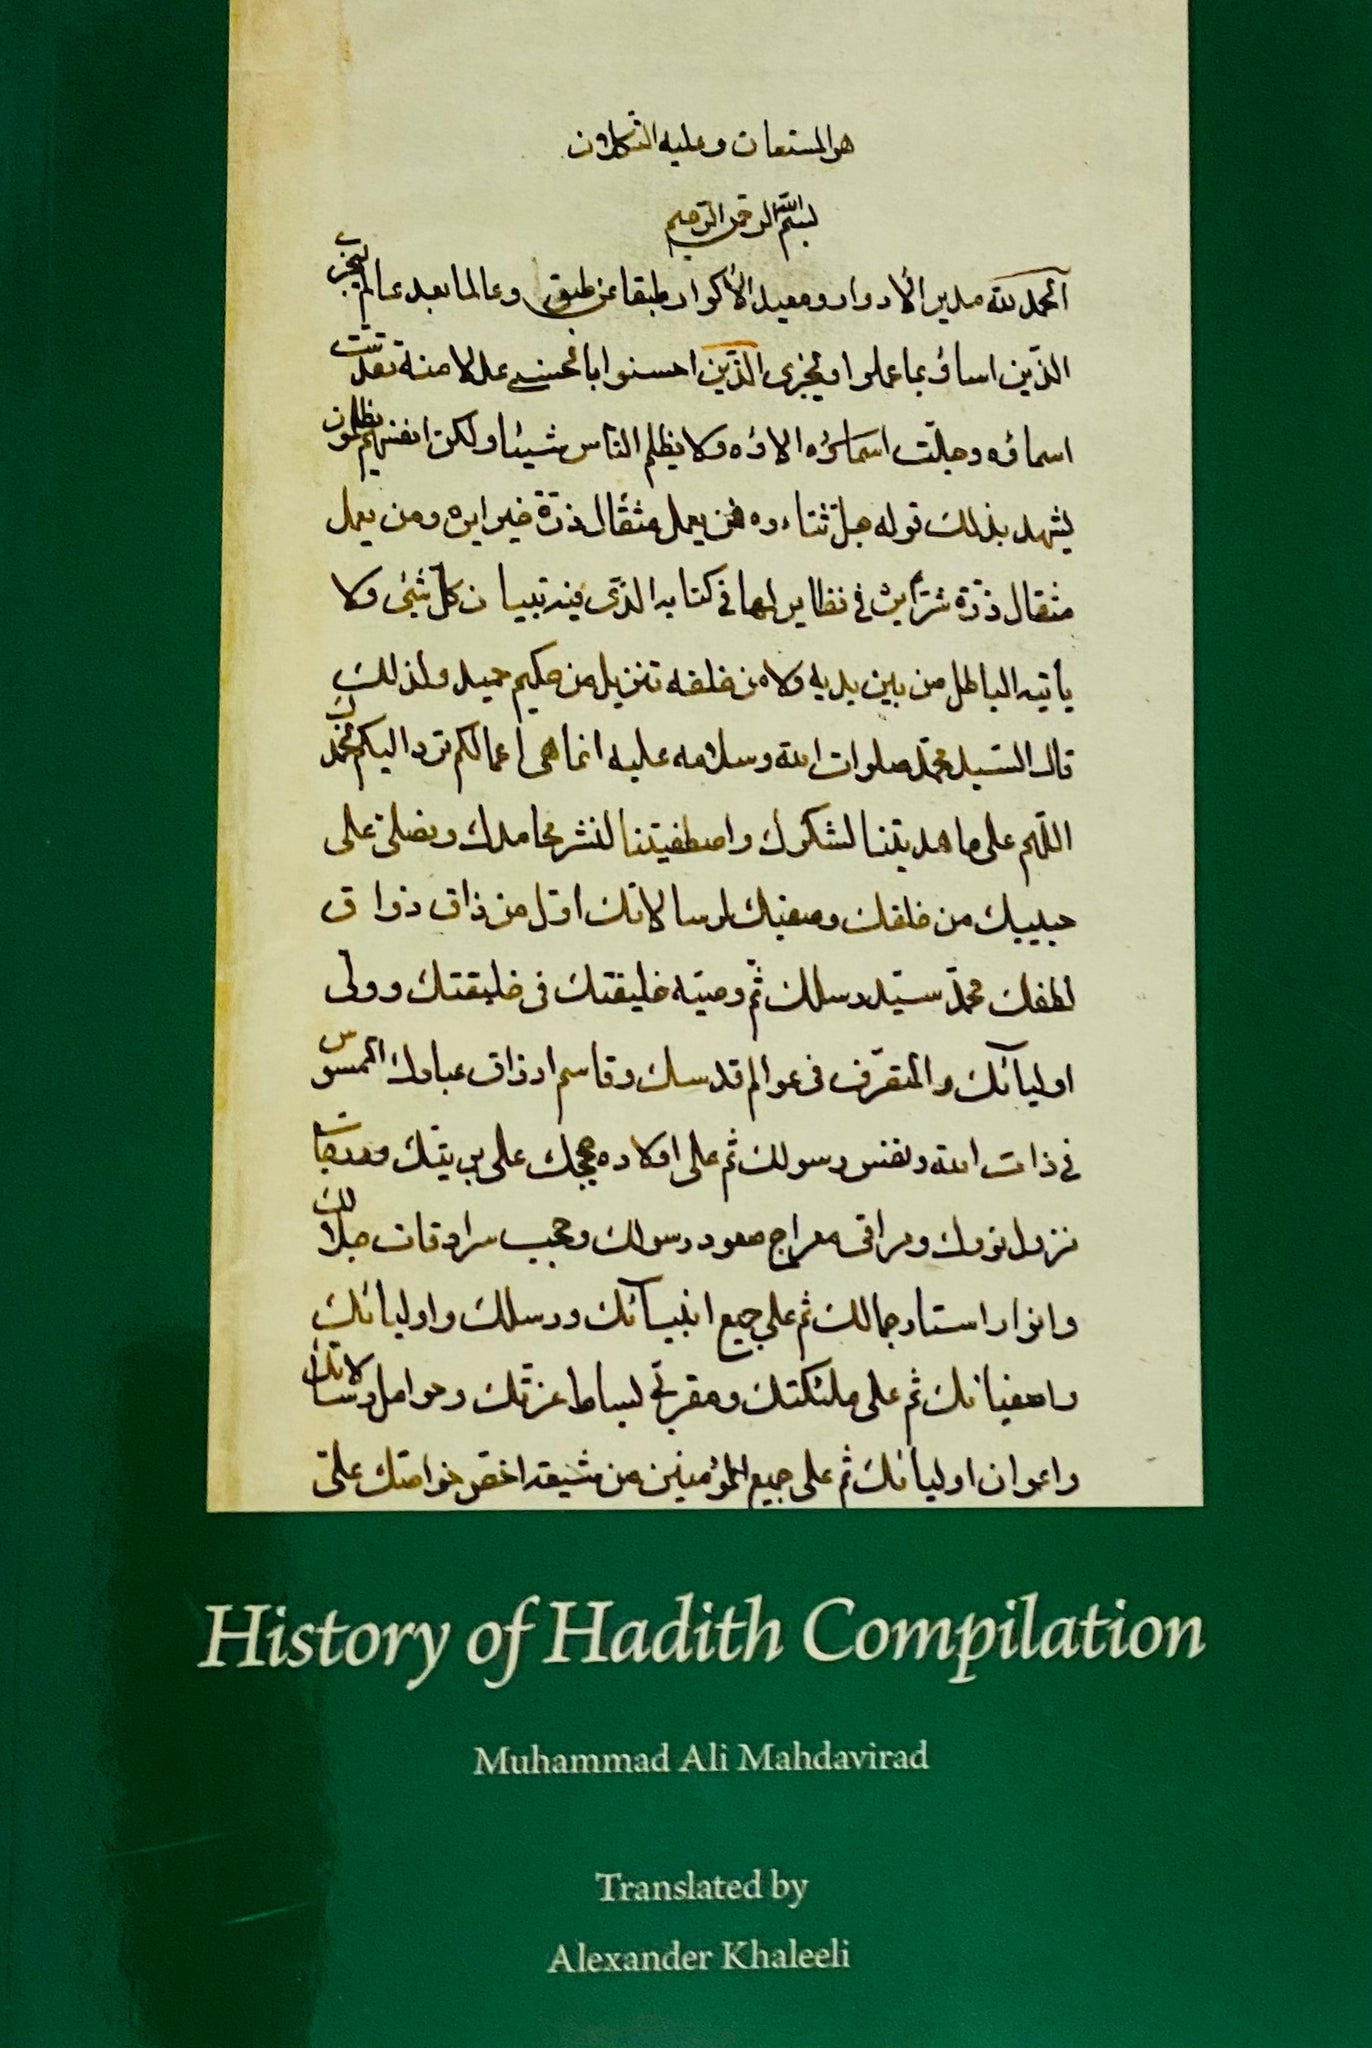 هو المستعان وعليه التكلان
بسم الله الرحمن الرحيم
الحمد لله مدير الادوار ومعيد الأكوار طبقا عن طبق وعالما بعد عالم ليجزي
الذين اساؤ بما عملوا ويجزى الذين احسنوا بالحسنى عدلا منه تقدست
اسماؤه وجلت الاؤه ولا يظلم الناس شيئا ولكن انفسهم يظلمون
يشهد بذلك قوله جل ثناءوه فمن يعمل مثقال ذرة خيرا يره ومن يعمل
مثقال ذرة شرا يره في نظاير لها في كتابه الذى فيه تبيان كل شئ ولا
يأتيه الباطل من بين يديه ولا من خلفه تنزيل من حكيم حميد ولذلك
قال السيد محمد صلوات الله وسلامه عليه انما هى اعمالكم ترد اليكم نحمدك
اللهم على ما هديتنا لشكرك واصطفيتنا لنشر محامدك ونصلى على
حبيبك من خلقك وصفيك لرسالاتك اول من ذاق ذواق
لطفك محمد سيد رسلك ثم وصيه خليفتك فى خليقتك وولى
اوليائك والمتصرف فى عوالم قدسك وقاسم ارزاق عبادك الممسوس
في ذات الله ونفس رسولك ثم على اولاده حججك على بريتك
نزول نورك ومراقى معراج صعود رسولك وحجب سرادقات جلالك
وانوار استار جمالك ثم على جميع انبيائك ورسلك واوليائك
واصفيائك ثم على ملئكتك ومقربى بساط عزتك وحوامل رسالاتك
واعوان اوليائك ثم على جميع المؤمنين من شيعة اخص خواصك على
History of Hadith Compilation
Muhammad Ali Mahdavirad
Translated by
Alexander Khaleeli